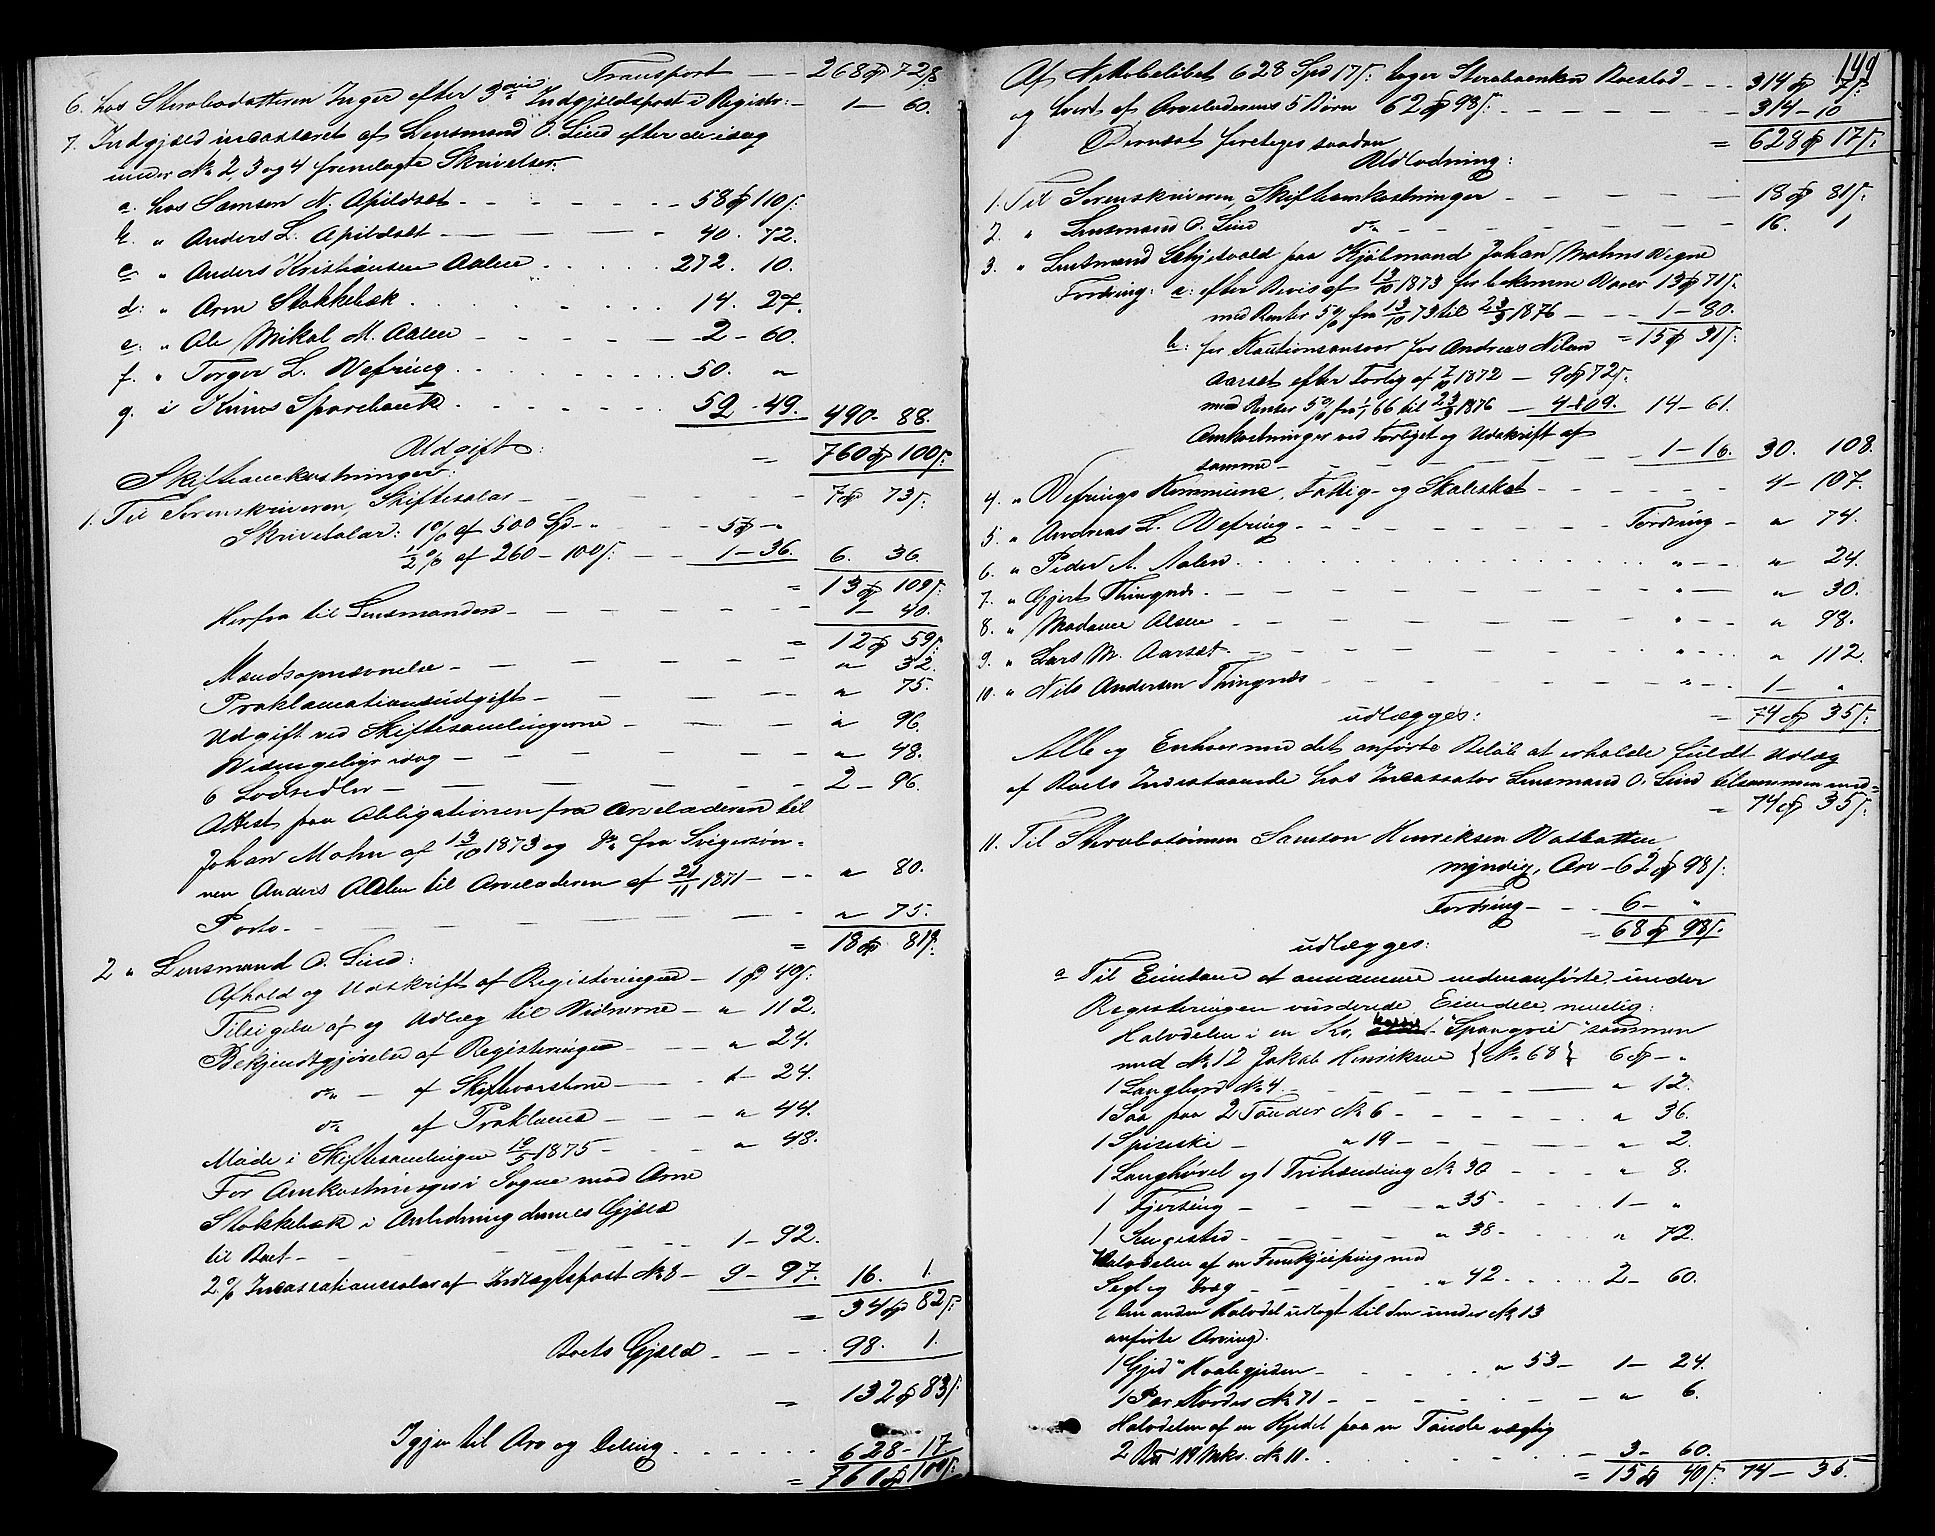 Transport - - 268 72ß
6. hos Sterbodatteren Inger efter 3die Indgjældspost i Registr: - 1 - 60.
7. Indgjæld incasseret af Lensmand O. Lind efter de idag
under № 2, 3 og 4 fremlagte Skrivelser.
a. hos Samson N. Apildset - - - 58 110ß
b. " Anders L. Apildset - - - 40. 72.
c. " Anders Kristiansen Aalen . . . . 272. 10.
d: " Arne Stokkebæk . . . . 14. 27.
e: " Ole Mikal M. Aalen - - - 2 - 60.
f. " Torger L. Vefring . . . . 50. "
g. i Kinns Sparebank . . . . 52 - 49. 490 - 88.
= 760 100ß.
Udgift:
Skifteomkostninger:
1. Til Sorenskriveren, Skiftesalar - - - 7 73ß.
Skrivesalar: 1% af 500 Spd - " - - 5 - "
½% af 260 - 100ß. - - 1 - 36. 6. 36.
= 13 109ß.
Herfra til Lensmanden - - - 1 - 40.
= 12 59ß.
Mændsopnævnelse - - - " 32.
Proklamationsudgift - - - " 75.
Udgift ved Skiftesamlingerne - - - " 96.
Vidnepenge idag - - - " 48.
6 Lodsedler - - - 2 - 96.
Attest paa Obligationen fra Arveladeren til
Johan Mohn af 13/10 1873 og do fra Svigersøn-
nen Anders Aalen til Arveladeren af 21/11 1871 - - - " 80.
Porto - - - " 75.
= 18 81ß.
2 " Lensmand O. Lind:
Afhold og Udskrift af Registreringen - 1 40ß.
Tilsigelse af og Udlæg til Vidnerne - " 112.
Bekjendtgjørelse af Registreringen - - " 24.
do - af Skiftevarslerne - - 24.
do af Proklama - - - " 44.
Møde i Skiftesamlingen 19/5 1875 - - " 48.
For Omkostninger i Sagen mod Arne
Stokkebæk i Anledning dennes Gjæld
til Boet - - - 1 - 92.
2% Incassationssalar af Indtægtspost № 8 - 9 - 97. 16. 1.
= 34 82ß.
Boets Gjæld - - - 98. 1.
= 132 83ß
Igjen til Arv og Deling . . . . 628 - 17
= 761 100ß.
199
Af Nettobeløbet 628 Spd 17ß: tager Sterboenken Boeslod - - - 314 7ß.
og hvert af Arveladerens 5 Børn 62 98ß. - - - 314 - 10
= 628 17ß.
Dernæst foretoges saadan
Udlodning:
1. Til Sorenskriveren, Skifteomkostninger - - - 18 81ß.
2. " Lensmand O. Lind do - - - 16. 1
3. " Lensmand paa Kjøbmand Johan Mohns Vegne
Fordring: a: efter Bevis af 13/10 1873 for bekomne Varer 13 71ß.
med Renter 5% fra 13/10 73 til 23/3 1876 - - - 1 - 80.
= 15 31ß.
b: for Kautionsansvar for Andreas Nilsen
Aarset efter Forlig af 7/10 1872 - 9 72ß.
med Renter 5% fra 1/1 66 til 23/3 1876 - 4 - 109. 14 - 61.
Omkostninger ved Forliget og Udskrift af
samme - - - 1 - 16. 30. 108.
4. " Vefrings Kommune, Fattig- og Skoleskat - - - 4 - 107.
5. " Andreas L. Vefring - - - Fordring - " 74.
6. " Peder A. Aalen . . . . " - - " 24.
7. " Gjert Thingnes - - - " - " 30.
8. " Madame Olsen - - - " - - " 98.
9. " Lars M. Aarset - - - " - - " 112.
10. " Nils Andersen Thingnes - - - " - - 1 - "
= 74 35ß.
udlægges:
Alle og Enhver med det anførte Beløb at erholde fuldt Udlæg
af Boets Indestaaende hos Incassator Lensmand O. Lind tilsammen med =
= 74 35ß.
11. Til Sterbosønnen Samson Henriksen Vasbotten,
myndig, Arv - 62 98ß.
Fordring - - - 6 - "
= 68 98ß.
udlægges:
a Til Eiendom at annamme nedenanførte, under
Registreringen vurderede Eiendele, nemlig:
Halvdelen i en Ko, "Spangrei" sammen
med № 12 Jakob Henriksen { № 68 } 6 - "
1 Langbord № 4. - - - " 12.
1 Saa paa 2 Tønder № 6 - - - " 36.
1 Spiseski - " 19 - - - " 2.
1 Langhøvel og 1 № 30 - - - " 8.
1 Fjersing - - - " 35 - - - 1 - "
1 Sengested - - - " 38 - - - " 72.
Halvdelen af en med
Segl og Dræg - - - " 42 - . . . 2 - 60.
( Den anden Halvdel udlagt til den under № 13
anførte Arving).
1 Gjed - - - " 53 - 1 - 24.
1 Par № 71 - - - " 6.
Halvdelen af en Kjedel paa en Tønde vægtig
2 19 Mks. № 11. . . . . - 3 - 60.
= 15 40ß. 74 - 35.